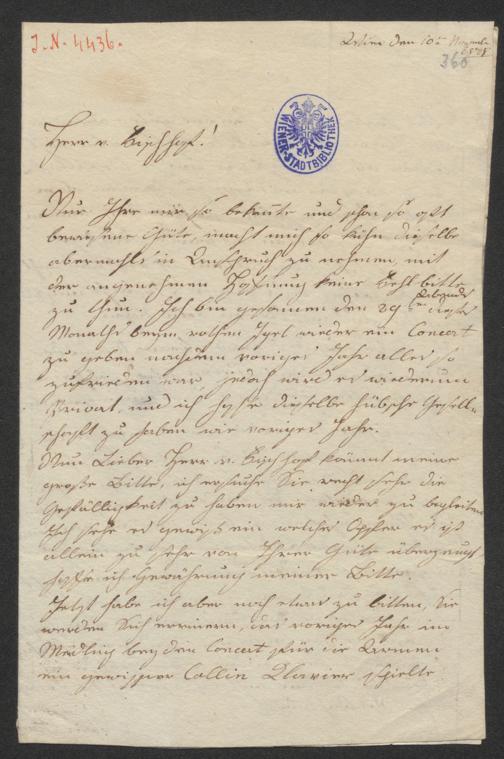 J. N. 4436.
Wien den 10t November
360
WIENER-STADTBIBLIOTHEK
Herr v. Bischhof!
Nur Ihre mir so bekannte und schon so oft
bewiesene Güte, macht mich so kühn dieselbe
abermahls in Anspruch zu nehmen, mit
der angenehmen Hoffnung keine Fehl-bitte
zu thun. Ich bin gesonnen den 29 dieses
Abends
Monaths beym rothen Igel wieder ein Concert
zu geben nachdem voriges Jahr alles so
zufrieden war, jedoch wird es wiederum
Privat, und ich hoffe dieselbe hübsche Gesell-
schaft zu haben wie voriges Jahr.
Nun Lieber Herr v. Bischhof kömmt meine
große Bitte, ich ersuche Sie recht sehr die
Gefälligkeit zu haben mir wieder zu begleiten
Ich sehe es gewiß ein welches Opfer es ist
allein zu sehr von Ihrer Güte überzeugt
hoffe ich Gewährung meiner Bitte.
Jetzt habe ich aber noch etwas zu bitten, Sie
werden Sich erinnern, das voriges Jahr in
Mödling bey den Concert für die Armen
ein gewisser Collin Clavier spielte